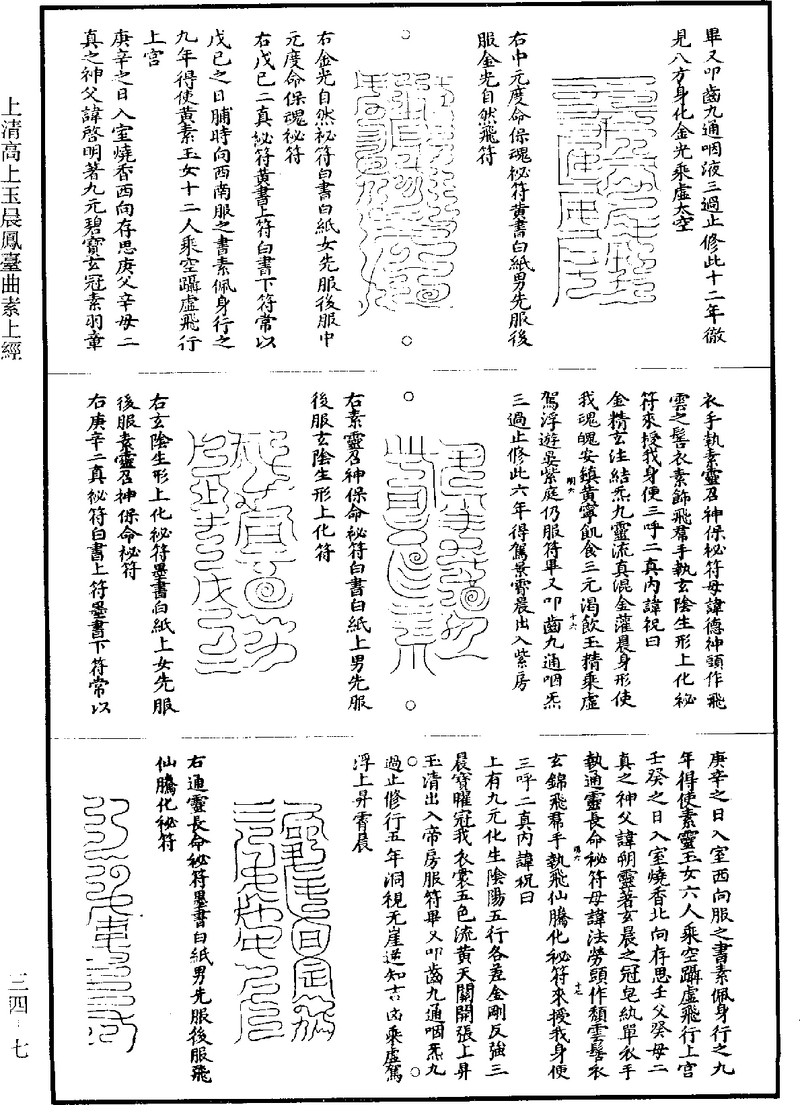 畢又叩齒九通咽液三過止修此十二年徹
見八方身化金光乘虛太空
右中元度命保魂祕符黃書白紙男先服後
服金光自然飛符
右金光自然祕符白書白紙女先服後服中
元度命保魂祕符
右戊己二真祕符黃書上符白書下符常以
戊己之日晡時向西南服之書素佩身行之
九年得使黃素玉女十二人乘空躡虛飛行
上宮
庚辛之日入室燒香西向存思庚父辛母二
真之神父諱啓明著九元碧寶玄冠素羽章
衣手執素靈召神保祕符母諱德神頭作飛
雲之髻衣素飾飛帬手執玄陰生形上化祕
符來授我身便三呼二真內諱祝曰
金精玄注結炁九靈流真混金灌晨身形使
我魂魄安鎮黃寧飢食三元渴飲玉精乘虛
駕浮遊晏紫庭仍服符畢又叩齒九通咽炁
三過止修此六年得駕景霄晨出入紫房
右素靈召神保命祕符白書白紙上男先服
後服玄陰生形上化符
右玄陰生形上化祕符墨書白紙上女先服
後服素靈召神保命祕符
右庚辛二真祕符白書上符墨書下符常以
庚辛之日入室西向服之書素佩身行之九
年得使素靈玉女六人乘空躡虛飛行上宮
壬癸之日入室燒香北向存思壬父癸母二
真之神父諱朔靈著玄晨之冠皂紈單衣手
執通靈長命祕符母諱法勞頭作頹雲髻衣
玄錦飛帬手執飛仙騰化祕符來授我身便
三呼二真內諱祝曰
上有九元化生陰陽五行各差金剛反強三
晨寶曜冠我衣裳五色流黃天關開張上昇
玉清出入帝房服符畢又叩齒九通咽炁九
過止修行五年洞視无崖逆知吉凶乘虛駕
浮上昇霄晨
右通靈長命祕符墨書白紙男先服後服飛
仙騰化祕符
上清高上玉晨鳳臺曲素上經
三四-七